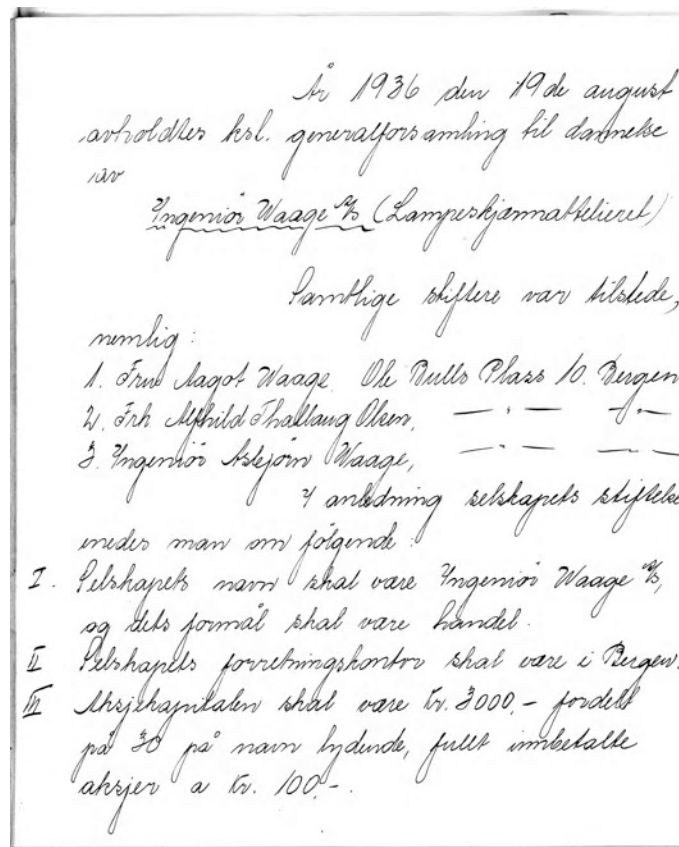 År 1936 den 19de august
avholdtes ksl. generalforsamling til dannelse
av
Ingeniör Waage A/S (Lampeskjærmattelieret)
Samtlige stiftere var tilstede,
nemlig:
1. Fru Aagot Waage. Ole Bulls Plass 10. Bergen
2. Frk. Alfhild Thallaug Olsen, — " — — " —
3. Ingeniör Asbjörn Waage, — " — — " —
I anledning selskapets stiftelse
enedes man om fölgende:
I. Selskapets navn skal være Ingeniör Waage A/S,
og dets formål skal være handel.
II Selskapets forretningskontor skal være i Bergen.
III Aksjekapitalen skal være kr. 3000,- fordelt
på 30 på navn lydende, fullt innbetalte
aksjer a kr. 100,-.